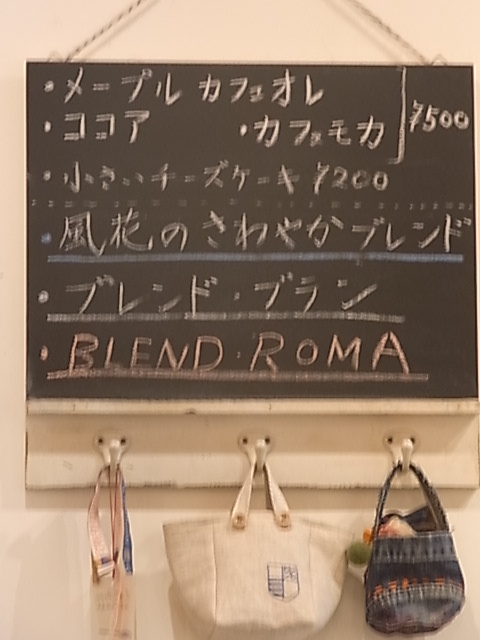 ・メープルカフェオレ
・ココア ・カフェモカ ¥500
・小さいチーズケーキ ¥200
・風花のさわやかブレンド
・ブレンド・ブラン
・BLEND・ROMA